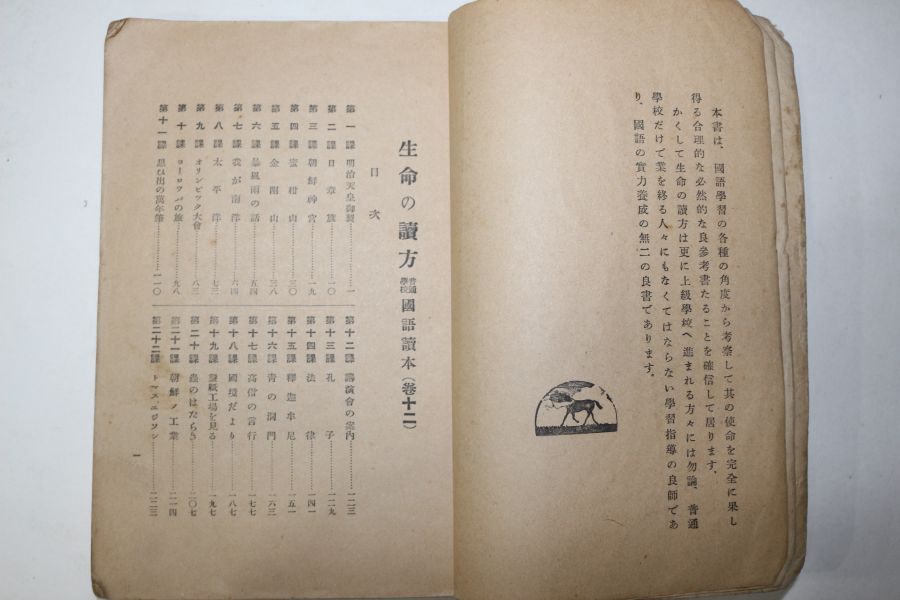 本書は、國語學習の各種の角度から考察して其の使命を完全に果し
得る合理的な必然的な良參考書たることを確信して居ります。
かくして生命の讀方は更に上級學校へ進まれる方々には勿論、普通
學校だけで業を終る人々にもなくてはならない學習指導の良師であ
り、國語の實力養成の無二の良書であります。
生命の讀方 普通學校 國語讀本(卷十二)
目次
第一課 明治天皇御製…………一
第二課 日章旗…………一〇
第三課 朝鮮神宮…………一九
第四課 蜜柑山…………三〇
第五課 金剛山…………三八
第六課 暴風雨の話…………五四
第七課 我が南洋…………六四
第八課 太平洋…………七三
第九課 オリンピック大會…………八三
第十課 ヨーロッパの旅…………九八
第十一課 思ひ出の萬年筆…………一一〇
第十二課 講演會の案内…………一二三
第十三課 孔子…………一二九
第十四課 法律…………一四一
第十五課 釋迦牟尼…………一五一
第十六課 青の洞門…………一六三
第十七課 高僧の言行…………一七七
第十八課 國境だより…………一八七
第十九課 製紙工場を見る…………一九七
第二十課 蟲のはたらき…………二〇七
第二十一課 朝鮮ノ工業…………二一四
第二十二課 トマス、エヂソン…………二二三
一